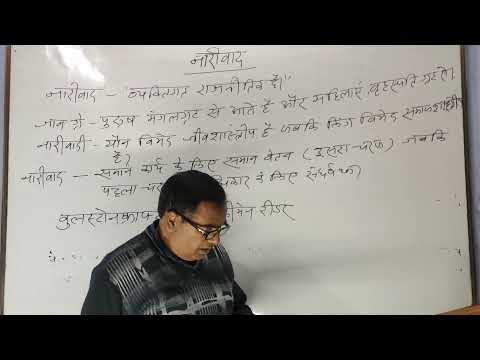 नारीवाद
नारीवाद - "व्यक्तिगत राजनीतिक है।"
जान ग्रे - पुरुष मंगलग्रह से आते हैं और महिलाएं बृहस्पति ग्रह से।
नारीवादी - यौन विभेद जीवशास्त्रीय है जबकि लिंग विभेद समाजशास्त्रीय
है।
नारीवाद - समान कार्य के लिए समान वेतन (दूसरा-चरण) जबकि
पहला चरण के लिए संघर्ष
वुलस्टोनक्राफ्ट रीडर